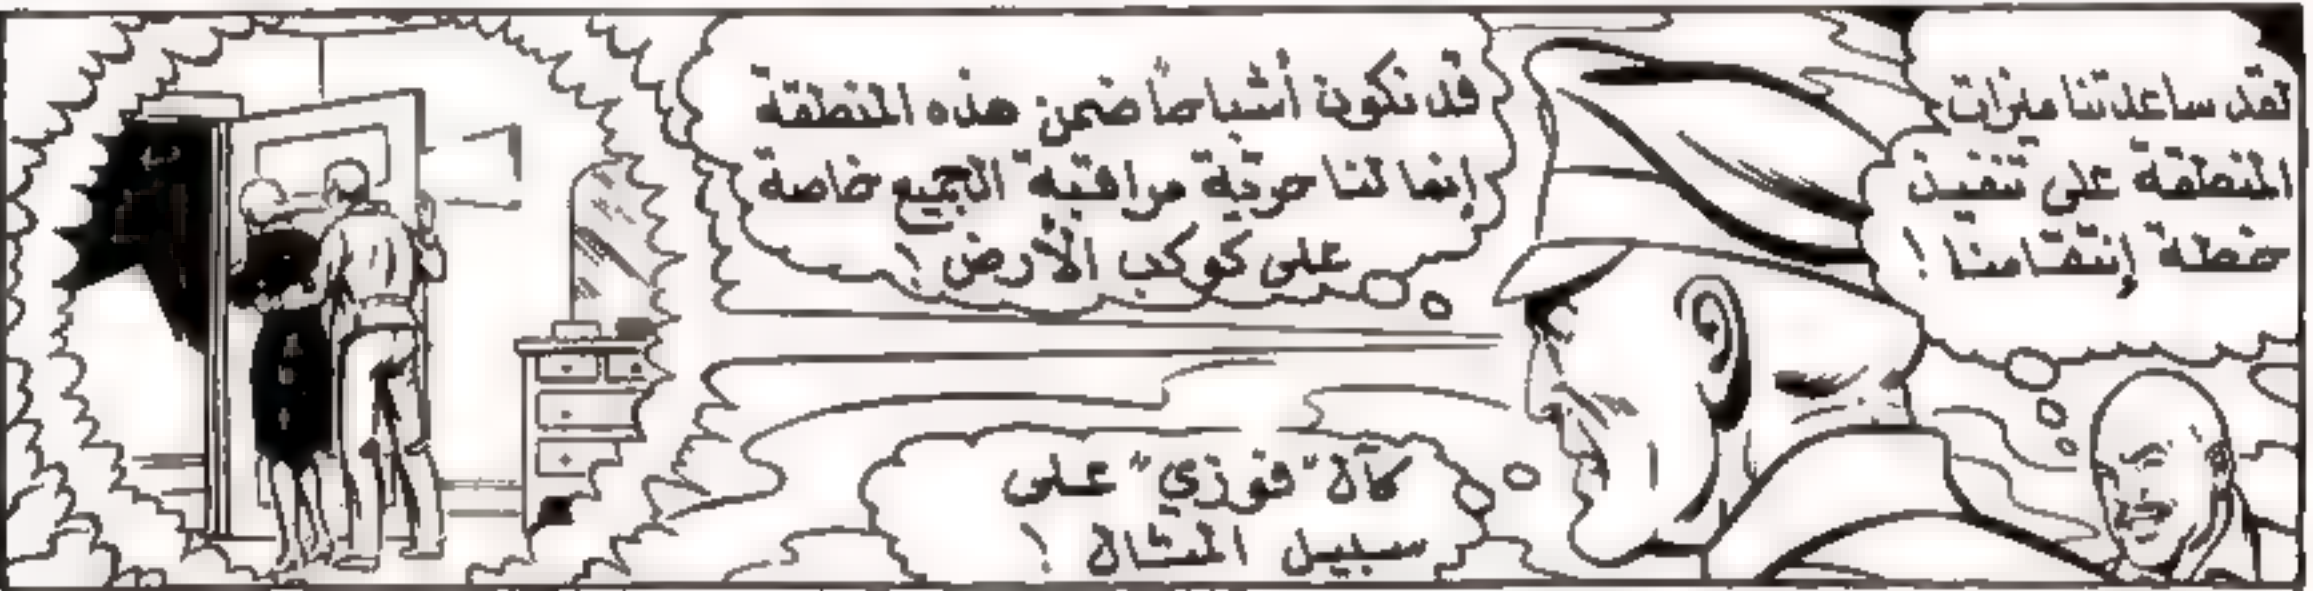 لقد ساعدتنا ميزات
المنطقة على تنفيذ
خطة إنتقامنا !
قد نكون أشباحاً ضمن هذه المنطقة
إنما لنا حرية مراقبة الجميع خاصة
على كوكب الأرض !
كآل "فوزي" على
سبيل المثال !